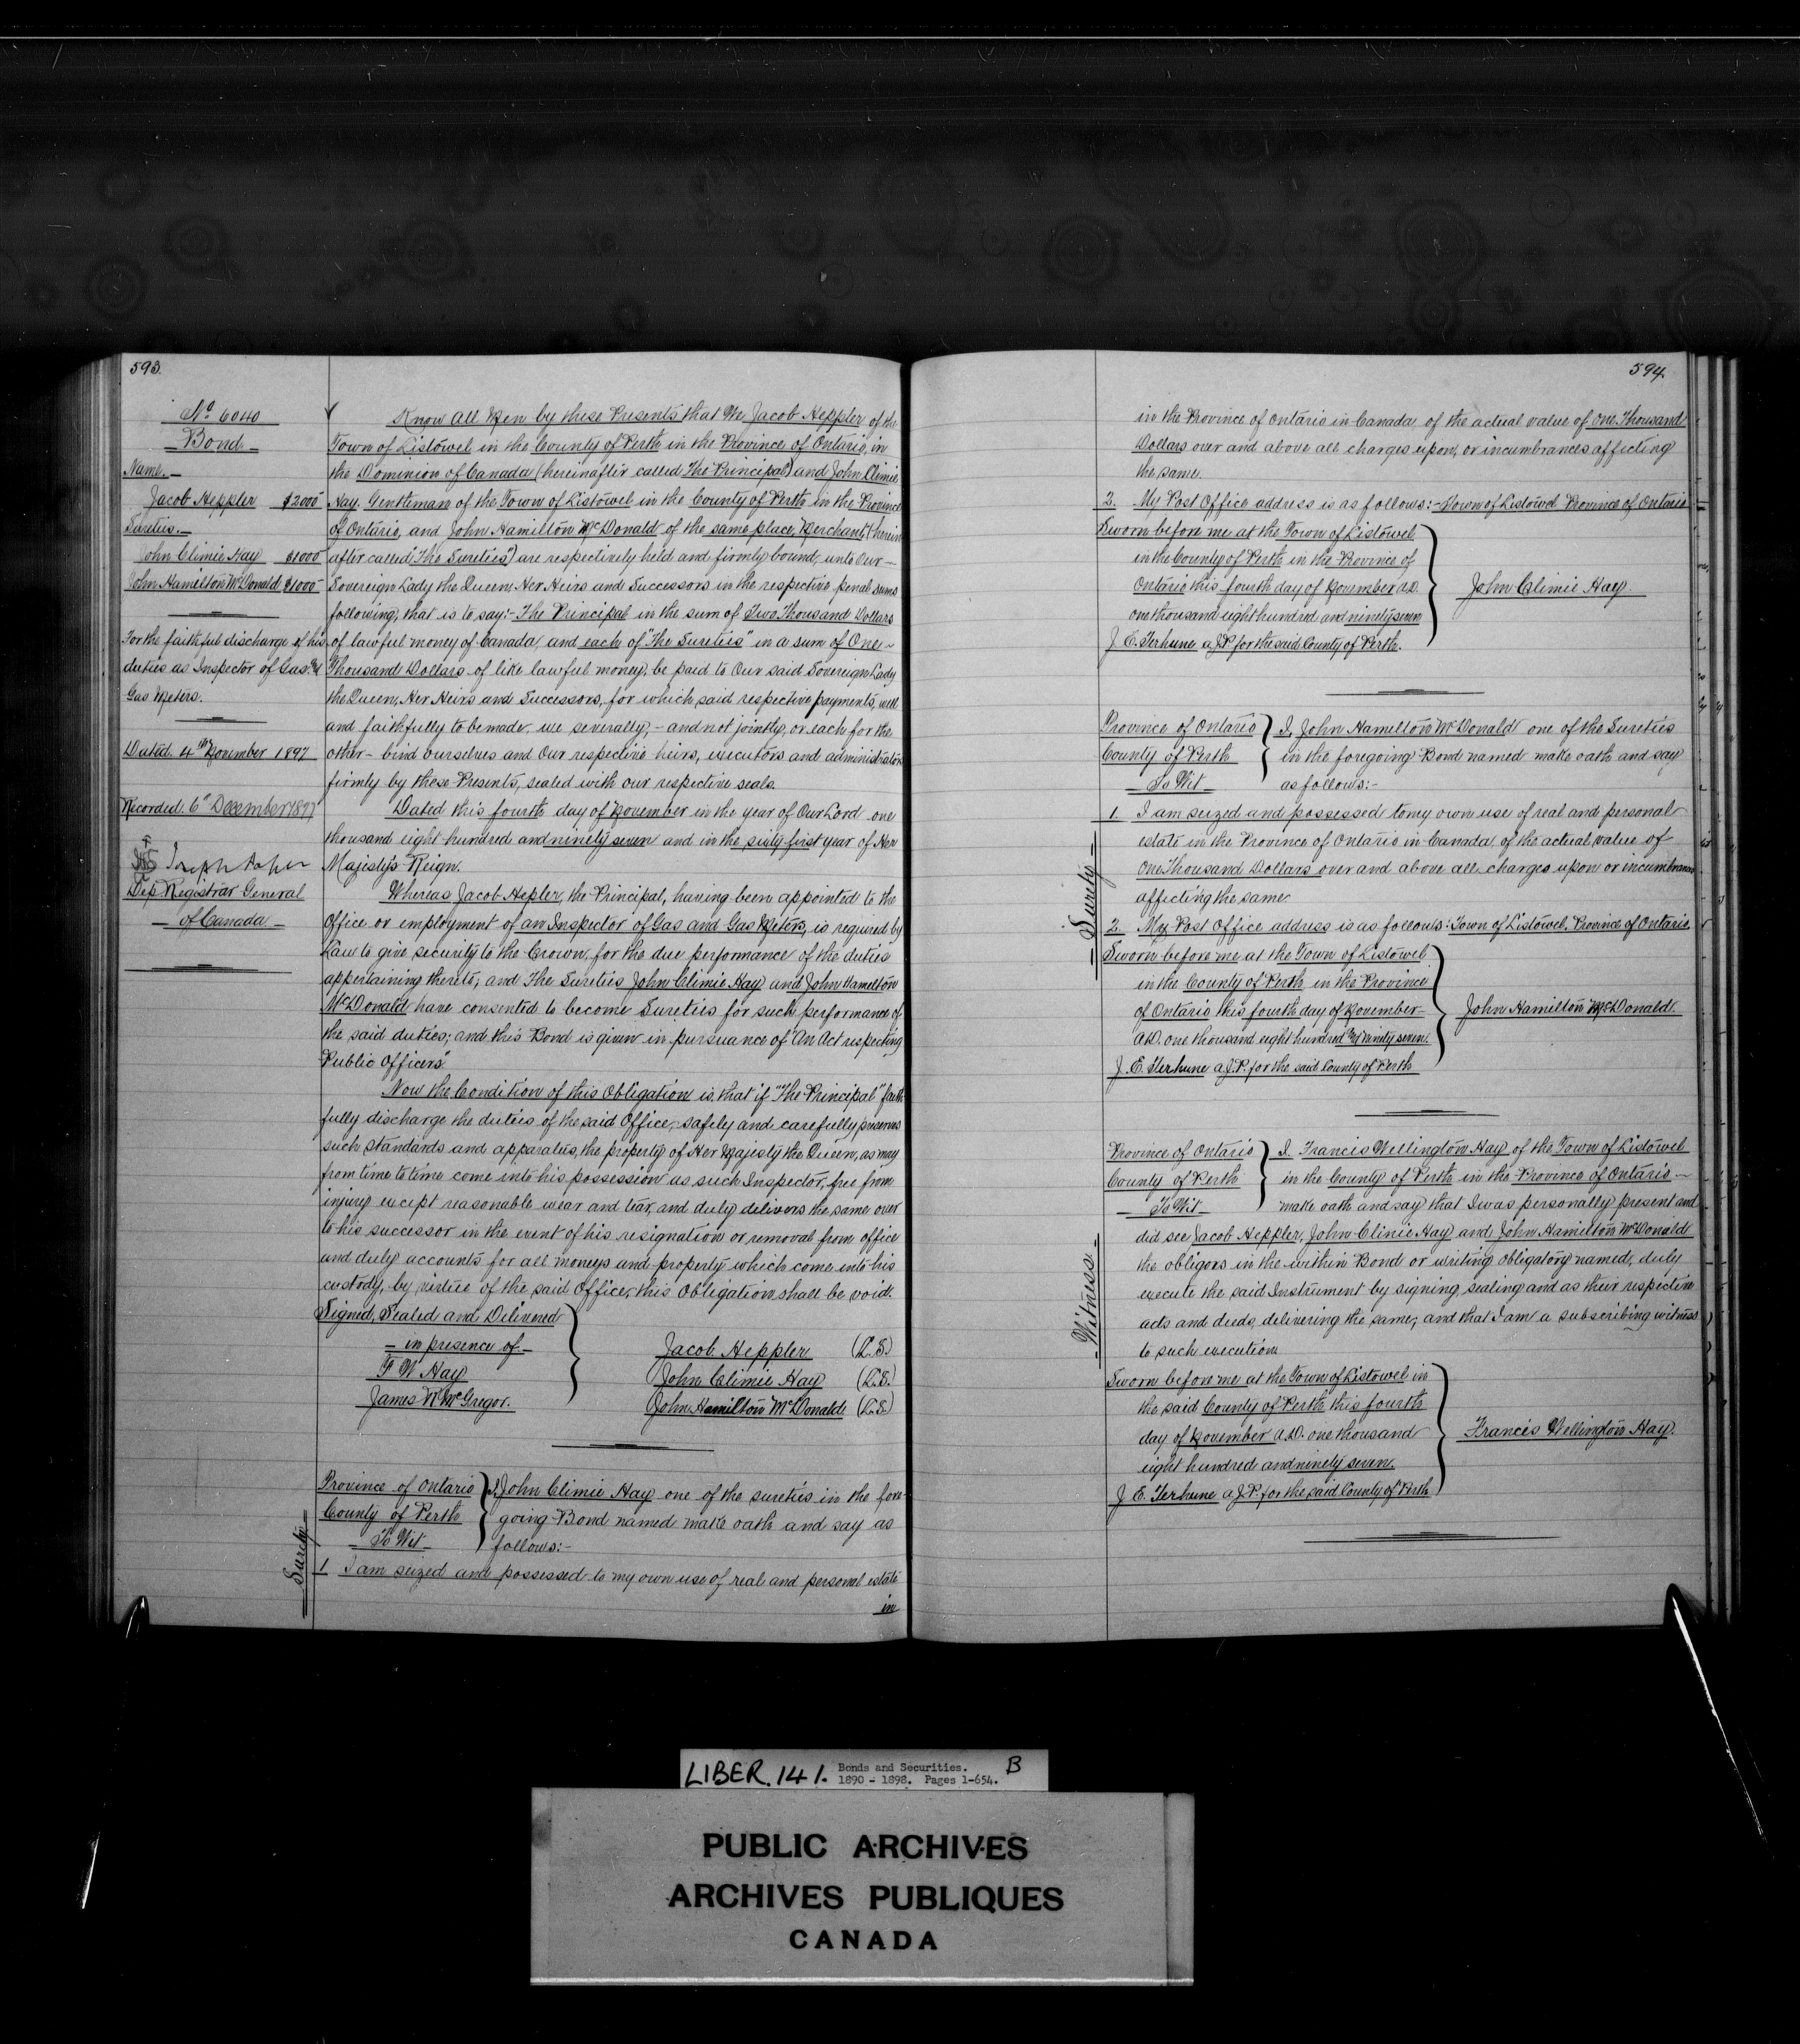 593.
No 6040
Bond
Name.
Jacob Heppler $2000
Sureties.
John Climie Hay $1000
John Hamilton McDonald $1000
For the faithful discharge of his
duties as Inspector of Gas and
Gas Meters.
Dated 4th November 1897
Recorded 6th December 1897
Dep Registrar General
of Canada
Know All Men by these Presents that We Jacob Heppler of the
Town of Listowel in the County of Perth in the Province of Ontario, in
the Dominion of Canada (hereinafter called "The Principal") and John Climie
Hay, Gentleman of the Town of Listowel in the County of Perth in the Province
of Ontario, and John Hamilton McDonald of the same place, Merchant, (herein
after called "The Sureties") are respectively held and firmly bound, unto Our
Sovereign Lady the Queen, Her Heirs and Successors in the respective penal sums
following, that is to say:- The Principal in the sum of Two Thousand Dollars
of lawful money of Canada, and each of "The Sureties" in a sum of One
Thousand Dollars of like lawful money, be paid to Our said Sovereign Lady
the Queen, Her Heirs and Successors, for which said respective payments, well
and faithfully to be made, we severally,- and not jointly, or each for the
other- bind ourselves and our respective heirs, executors and administrators
firmly by these Presents, sealed with our respective seals.
Dated this fourth day of November in the year of Our Lord one
thousand eight hundred and ninety seven and in the sixty first year of Her
Majesty's Reign.
Whereas Jacob Hepler, the Principal, having been appointed to the
Office or employment of an Inspector of Gas and Gas Meters, is required by
Law to give security to the Crown, for the due performance of the duties
appertaining thereto; and The Sureties John Climie Hay and John Hamilton
McDonald have consented to become Sureties for such performance of
the said duties; and this Bond is given in pursuance of "An Act respecting
Public Officers"
Now the Condition of this Obligation is, that if "The Principal" faith
fully discharge the duties of the said Office, safely and carefully preserves
such standards and apparatus, the property of Her Majesty the Queen, as may
from time to time come into his possession as such Inspector, free from
injury except reasonable wear and tear, and duly delivers the same over
to his successor in the event of his resignation or removal from office
and duly accounts for all moneys and property which come into his
custody, by virtue of the said Office, this Obligation shall be void.
Signed, Sealed and Delivered
in presence of
F W Hay
James W McGregor.
Jacob Heppler (L.S.)
John Climie Hay (L.S.)
John Hamilton McDonald (L.S.)
Surety
Province of Ontario
County of Perth
To Wit
I, John Climie Hay one of the sureties in the fore-
going Bond named make oath and say as
follows:-
1 I am seized and possessed to my own use of real and personal estate
in
594.
in the Province of Ontario in Canada of the actual value of One Thousand
Dollars over and above all charges upon, or incumbrances affecting
the same.
2. My Post Office address is as follows:- Town of Listowel Province of Ontario
Sworn before me at the Town of Listowel
in the County of Perth in the Province of
Ontario this fourth day of November A.D.
one thousand eight hundred and ninety seven
J. E. Terhune a J.P. for the said County of Perth.
John Climie Hay.
Surety
Province of Ontario
County of Perth
To Wit
I, John Hamilton McDonald one of the Sureties
in the foregoing Bond named make oath and say
as follows:-
1. I am seized and possessed to my own use of real and personal
estate in the Province of Ontario in Canada of the actual value of
One Thousand Dollars over and above all charges upon or incumbrances
affecting the same.
2. My Post Office address is as follows: Town of Listowel, Province of Ontario.
Sworn before me at the Town of Listowel
in the County of Perth in the Province
of Ontario this fourth day of November
A.D. one thousand eight hundred and ninety seven.
J. E. Terhune a J.P. for the said County of Perth
John Hamilton McDonald.
Witness
Province of Ontario
County of Perth
To Wit
I, Francis Wellington Hay of the Town of Listowel
in the County of Perth in the Province of Ontario
make oath and say that I was personally present and
did see Jacob Heppler, John Climie Hay and John Hamilton McDonald
the obligors in the within Bond or writing obligatory named, duly
execute the said Instrument by signing, sealing and as their respective
acts and deeds, delivering the same; and that I am a subscribing witness
to such execution
Sworn before me at the Town of Listowel in
the said County of Perth this fourth
day of November A.D. one thousand
eight hundred and ninety seven.
J E. Terhune a J.P. for the said County of Perth
Francis Wellington Hay.
LIBER. 141. Bonds and Securities. B
1890 - 1898. Pages 1-654.
PUBLIC ARCHIVES
ARCHIVES PUBLIQUES
CANADA